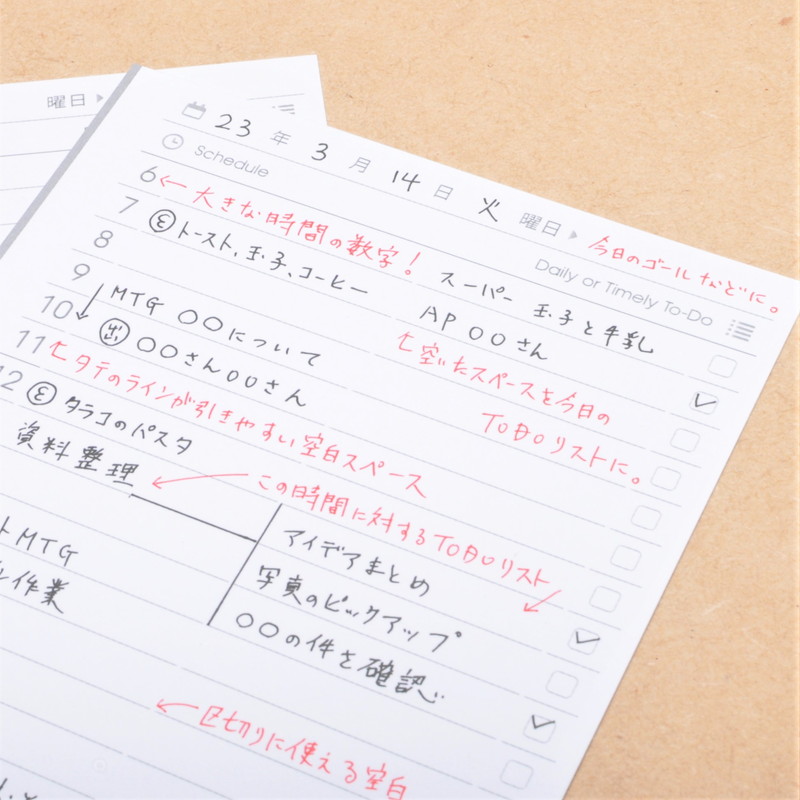 曜日
23 年 3 月 14 日 火 曜日
今日のゴールなどに。
Schedule
Daily or Timely To-Do
6 ← 大きな時間の数字!
7 トースト、玉子、コーヒー
スーパー 玉子と牛乳
8
AP ○○さん
9 MTG ○○について
空いたスペースを今日の
TODOリストに。
10 出 ○○さん○○さん
11 タテのラインが引きやすい空白スペース
12 タラコのパスタ
資料整理
この時間に対するTODOリスト
アイデアまとめ
写真のピックアップ
○○の件を確認
MTG
作業
← 区切りに使える空白